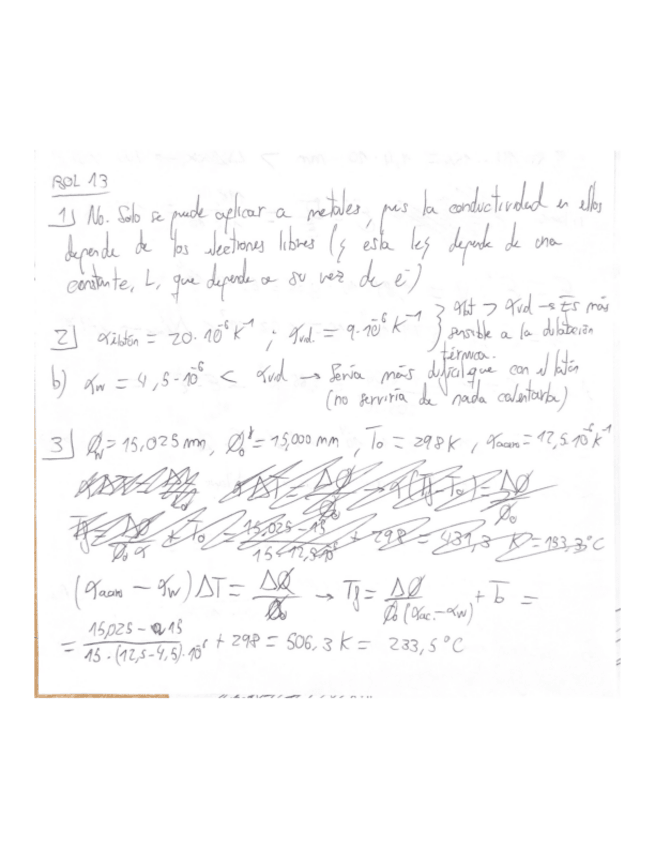 BOL 13
1) No. Solo se puede aplicar a metales, pues la conductividad en ellos
depende de los electrones libres (y esta ley depende de una
constante, L, que depende a su vez de e⁻)
2) α latón = 20·10⁻⁶ K⁻¹ ; α vid. = 9·10⁻⁶ K⁻¹ } α lat > α vid → Es más
sensible a la dilatación
térmica.
b) α w = 4,5·10⁻⁶ < α vid → Sería más difícil que con el latón
(no serviría de nada calentarla)
3) Ø w = 15,025 mm, Ø₀ = 15,000 mm, T₀ = 298 K, α acero = 12,5·10⁻⁶ K⁻¹
α(Tf - T₀) = ΔØ/Ø₀
Tf = ΔØ/(Ø₀ α) + T₀ = (15,025 - 15)/(15·12,5·10⁻⁶) + 298 = 431,3 K = 153,3°C
(α acero - α w) ΔT = ΔØ/Ø₀ → Tf = ΔØ/(Ø₀(α ac. - α w)) + T₀ =
= (15,025 - 15)/(15·(12,5-4,5)·10⁻⁶) + 298 = 506,3 K = 233,5°C